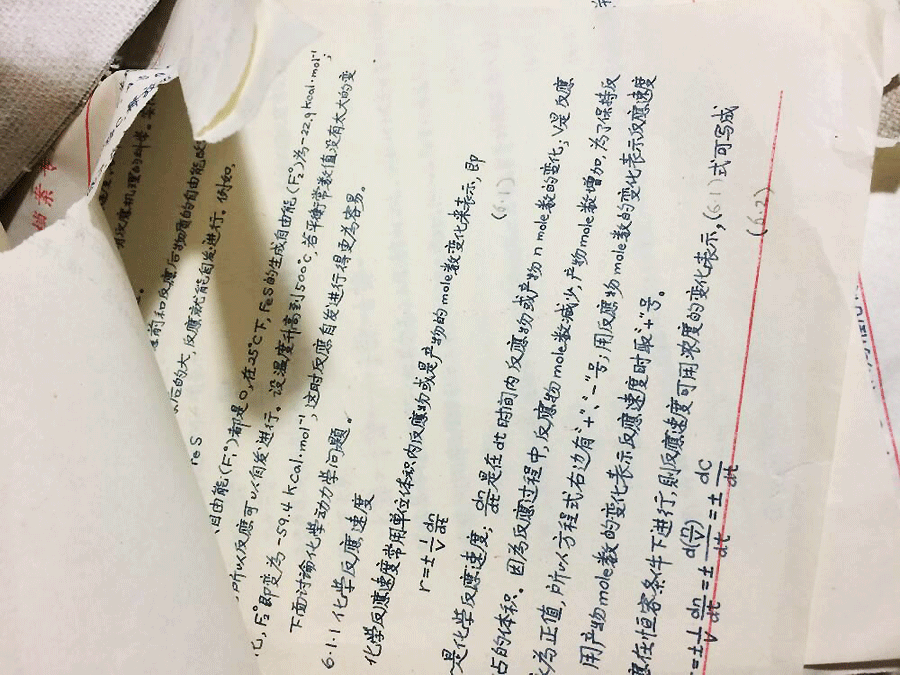 前和反应后物质的自由能
后的大,反应就能自发进行。例如,
Fe S
自由能(F₁°)都是0,在25℃下,FeS的生成自由能(F₂°)为-22.9 kcal·mol⁻¹,
所以反应可以自发进行。设温度升高到500℃,若平衡常数值没有太大的变
化,F₂°即变为-59.4 kcal.mol⁻¹,这时反应自发进行得更为容易。
下面讨论化学动力学问题。
6.1.1 化学反应速度
化学反应速度常用单位体积内反应物或是产物的mole数变化来表示,即
r=±1/V dn/dt (6.1)
是化学反应速度;dn/dt是在dt时间内反应物或产物n mole数的变化;V是反应
占的体积。因为反应过程中,反应物mole数减少,产物mole数增加,为了保持反
为正值,所以方程式右边有“+”、“-”号;用反应物mole数的变化表示反应速度
用产物mole数的变化表示反应速度时取“+”号。
应在恒容条件下进行,则反应速度可用浓度的变化表示,(6.1)式可写成
r=±1/V dn/dt=±d(n/V)/dt=±dC/dt (6.2)